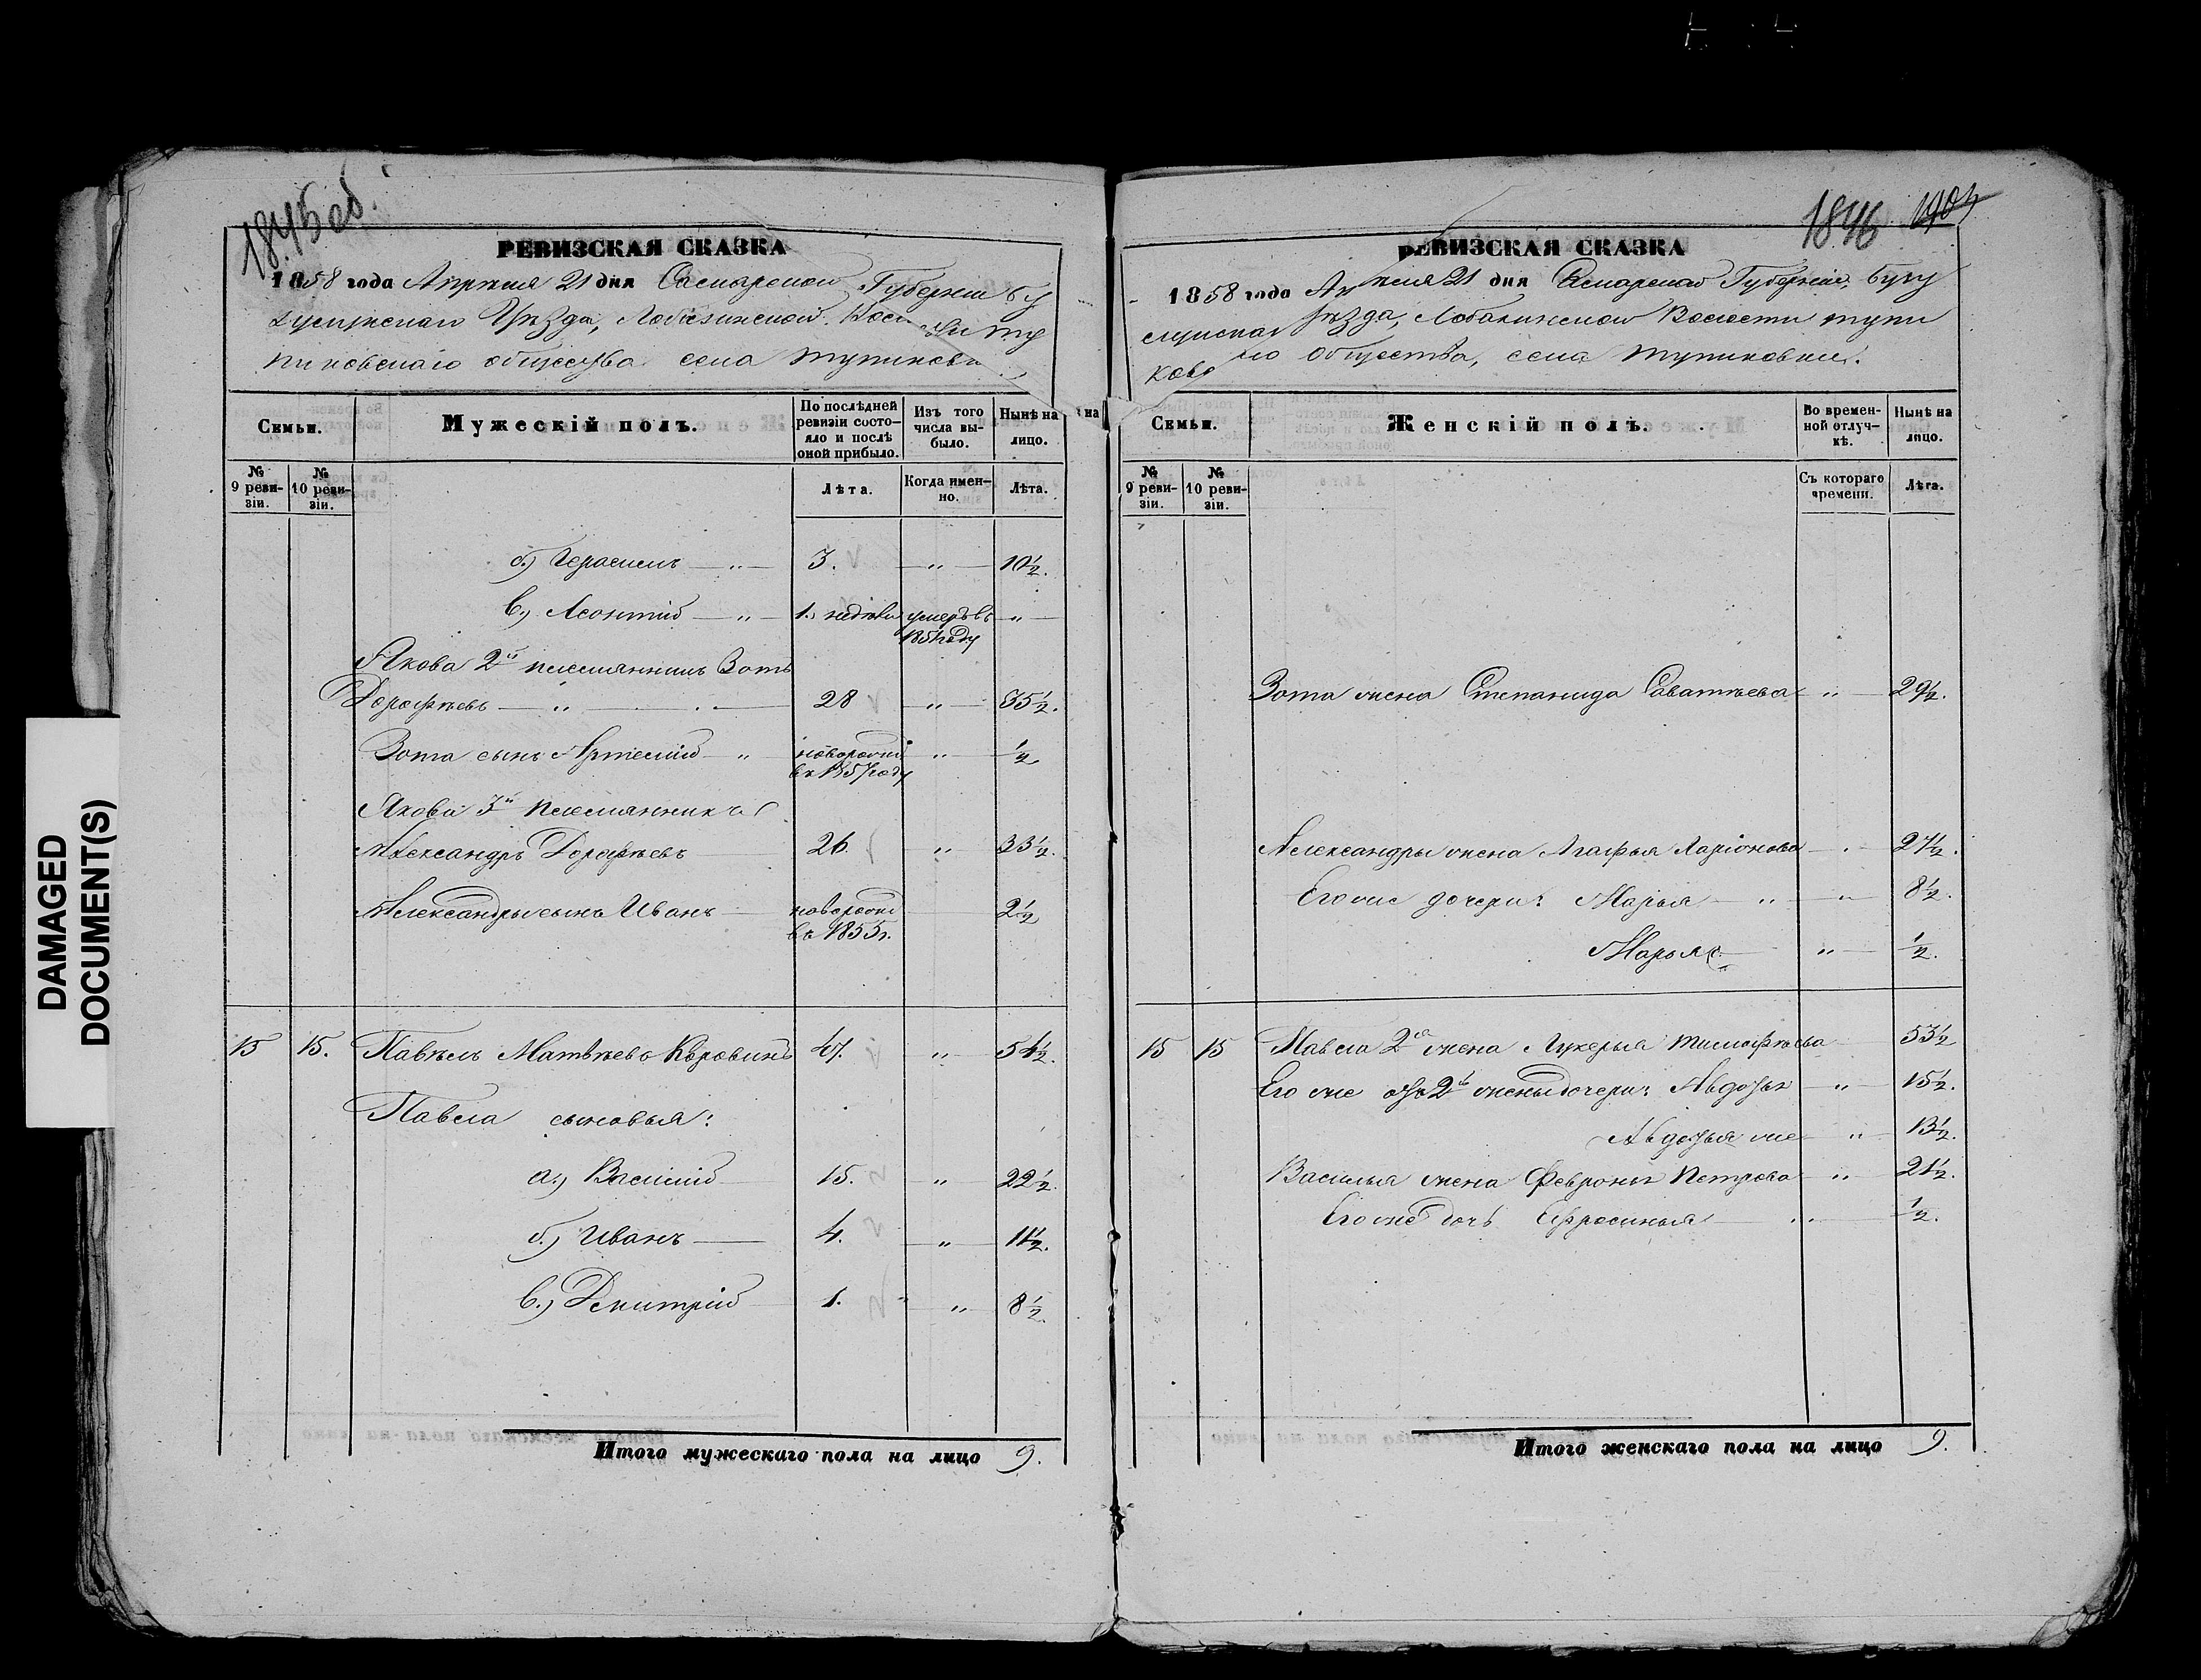 DAMAGED
DOCUMENT(S)
1845 об.
РЕВИЗСКАЯ СКАЗКА
1858 года Апреля 21 дня Самарской Губернии Бу
гуслускаго Уѣзда, Лобазинской
пиковскаго общества села Тупиковк
Семьи.
Мужескій полъ.
По послѣдней ревизіи состояло и послѣ оной прибыло.
Изъ того числа выбыло.
Нынѣ на лицо.
№ 9 ревизіи.
№ 10 ревизіи.
Лѣта.
Когда именно.
Лѣта.
б.) Герасимъ — „ — 3. — „ — 10½.
в.) Леонтій — „ — 1. недѣли умеръ въ 1851 году „
Якова 2й племянникъ Зотъ
Дорофѣевъ — „ — 28 — „ — 35½.
Зота сынъ Артемій — „ новорожд въ 1857 году — „ — ½
Якова 3й племянникъ
Александръ Дорофѣевъ 26. „ 33½.
Александры сынъ Иванъ — новорожд въ 1855 г. 2½
15 15. Павѣлъ Матвѣевъ Коровинъ 47. „ 54½.
Павла сыновья:
а.) Василій — 15. „ 22½.
б.) Иванъ — 4. — „ — 11½.
в.) Дмитрій 1. „ 8½.
Итого мужескаго пола на лицо 9.
1846 1904
РЕВИЗСКАЯ СКАЗКА
1858 года Апреля 21 дня Самарской Губерніи, Бугу
слускаго Уѣзда, Лобазинской Волости Тупи
ковскаго Общества, села Тупиковки.
Семьи.
Женскій полъ.
Во временной отлучкѣ.
Нынѣ на лицо.
№ 9 ревизіи.
№ 10 ревизіи.
Съ котораго времени.
Лѣта.
Зота жена Степанида Саватѣева — „ — 29½.
Александры жена Агафья Ларіонова — „ — 27½.
Его же дочери: Марья — „ — „ — 8½.
Марья — „ — ½.
15 15 Павла 2я жена Лукерья Тимофѣева 53½
Его же отъ 2й жены дочери: Авдотья — „ — 15½.
Авдотья же — „ — 13½.
Василья жена Февронья Петрова — „ — 21½.
Его же дочь Ефросинья — „ — ½.
Итого женскаго пола на лицо 9.